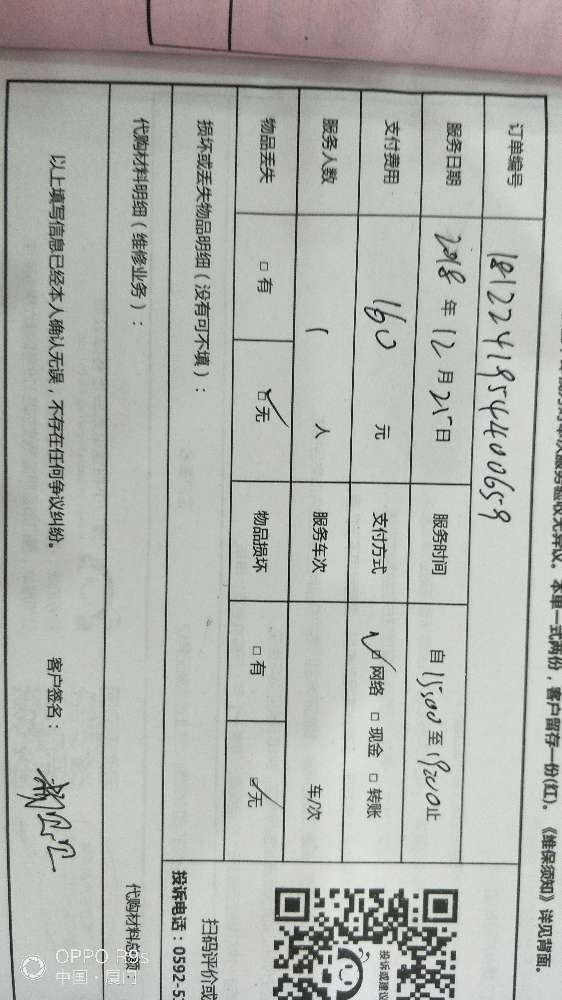 本单一式两份，客户留存一份(红)。《维保须知》详见背面。
订单编号 1812241954400659
服务日期 2018 年 12 月 25 日 服务时间 自 15:00 至 19:00 止
支付费用 160 元 支付方式 ☑网络 □现金 □转账
服务人数 1 人 服务车次 车/次
物品丢失 □有 ☑无 物品损坏 □有 ☑无
损坏或丢失物品明细（没有可不填）：
代购材料明细（维修业务）：
代购材料总额：
以上填写信息已经本人确认无误，不存在任何争议纠纷。
客户签名：
投诉或建议
扫码评价或
投诉电话：0592-5
OPPO R9s
中国·厦门